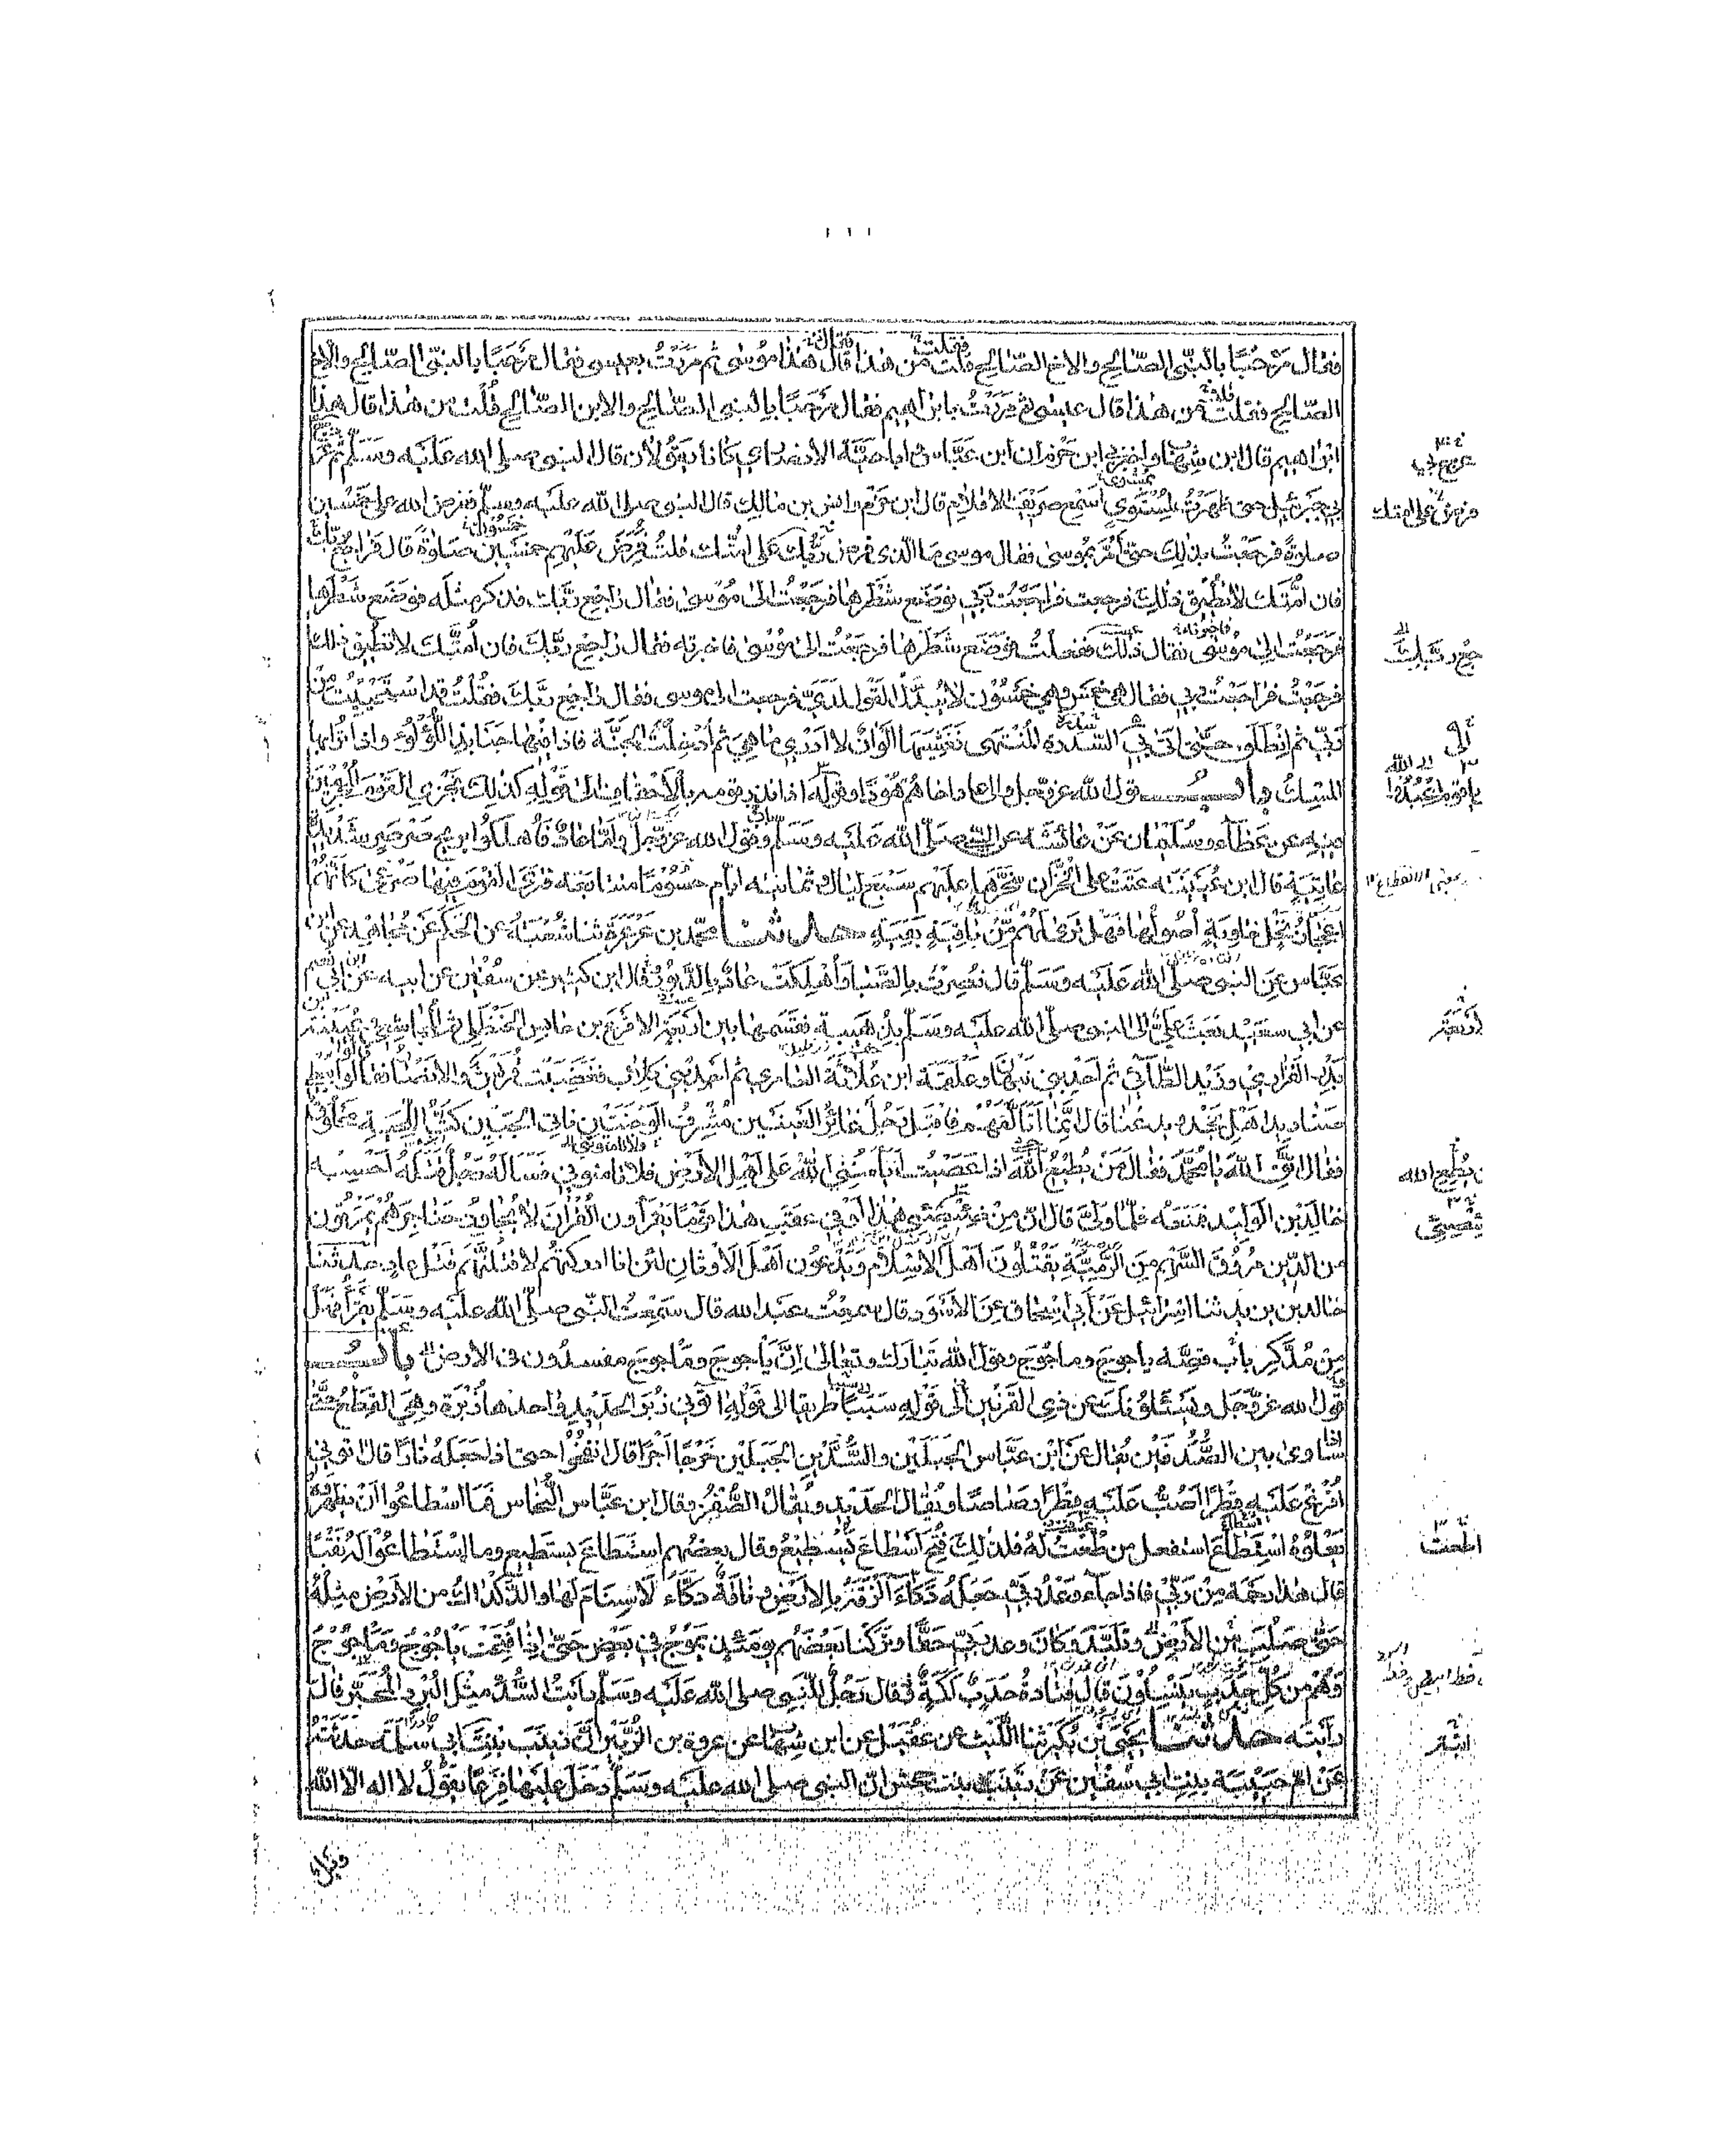 فقال مَرْحَبًا بالنَّبِىّ الصّالِحِ والاخِ الصّالِحِ قلت مَن هذا قال هٰذا مُوسٰى ثم مَرَرْتُ بعيسى فقال مَرْحَبًا بالنبىّ الصّالِحِ والاخ
الصّالِحِ فقلت مَن هٰذا قال عيسٰى ثم مَرَرْتُ بابْرٰاهيم فقال مَرْحَبًا بِالنبىّ الصّالِحِ والابن الصّالِحِ قُلْت من هٰذا قال هذا
ابْرٰاهيم قال ابن شِهٰاب واخبرنى ابن حَزْم ان ابن عَبّاس وابا حَيَّة الانصارى كانا يَقُولان قال النبى صلى الله علَيْه وسَلّم ثم عُرِجَ
بِى جَبْرَئيل حتى ظَهَرْتُ لِمُسْتَوًى اَسْمَع صَرِيفَ الاقلام قال ابن حَزْم وانس بن مالك قال النبى صلى الله علَيْه وسلّم ففرض الله علىّ خَمْسين
صلاةً فرجَعْتُ بذلك حتى اَمُرَّ بمُوسٰى فقال موسى ما الذى فرض رَبُّك على امّتك قلتُ فَرَضَ علَيْهم خمسين صَلوٰةً قال فَراجِعْ ربّك
فان اُمَّتَك لا تُطِيق ذٰلك فرجعت فراجَعْتُ ربّى فوَضَع شَطْرها فرجَعْتُ الى مُوسٰى فقال راجِع رَبَّك فذكر مثله فوَضَع شَطْرَها
فرَجَعْتُ الى مُوسٰى فقال ذٰلك ففعلتُ فوَضَع شَطْرَها فرجَعْتُ الى مُوسٰى فاخبرته فقال راجِع ربَّك فان اُمَّتَك لا تطيق ذلك
فرجَعْتُ فراجَعْتُ ربى فقال هى خمس وهى خَمْسُوْن لا يُبَدَّلُ القَوْل لَدَىَّ فرجعت الى موسى فقال راجع ربَّك فقُلْتُ قد اسْتَحْيَيْت من
رَبّى ثم انْطَلَق حتّى اَتٰى بِىَ السِّدْرة المُنْتَهٰى فغَشِيَها اَلْوٰان لا اَدْرِى ما هِىَ ثم اُدْخِلْتُ الجنّة فاذا فيها جَنَابِذ اللُّؤْلُؤِ واذا تُرابُها
المِسْكُ باب قول الله عزّ وجل والى عاد اخاهم هُوْدًا وقوله اذ انذر قومه بالاَحْقاف الى قَوْلِه كذٰلك نَجْزى القَوْم المُجْرِمين
فيه عن عَطَاء وسُلَيْمٰان عَنْ عائشة عن النبىّ صلّى الله علَيْه وسَلّم وقول الله عزّ وجلّ وامّا عادٌ فاُهلكوا بريح صَرْصَرٍ شَدِيدة
عاتِيَةٍ قال ابن عُيَيْنَة عتَتْ على الخُزّان سَخَّرَها علَيْهم سَبْع لَيال وثمٰانية ايّام حُسُوْمًا متتابعة فترى القَوْم فيها صَرْعٰى كاَنَّهُم
اَعْجازُ نَخْل خاوِيَةٍ اُصُوْلُها فَهَلْ تَرٰى لَهُم مِّنْ باقِيَةٍ بَقِيّةٍ حدثنا محمّد بن عَرْعَرَة ثنا شُعْبَة عن الحَكَم عَنْ مُجاهِد عن ابن
عبّاس عن النبى صلّى الله علَيْه وسَلّم قال نُصِرْتُ بِالصَّبا واُهْلِكَتْ عادٌ بالدَّبُوْر قال ابن كثير عن سُفْيٰن عن ابيه عن ابن ابى نُعم
عن ابى سعيد بَعَثَ عَلِىٌّ الى النبى صلى الله علَيْه وسَلّم بذُهَيْبة فقسمها بين اَرْبَعة الاقرع بن حابِس الحَنْظَلى ثم المُجاشِعىّ وعُيَيْنة بن
بَدْر الفَزارىّ وزَيْد الطّآئىّ ثم اَحَد بنى نَبْهان وعلقمة ابن عُلاثَة العامرى ثم اَحَد بنى كِلاب فغَضِبَت قُرَيْش والانصار فقالوا يُعطِى
صَنادِيد اَهْل نَجْد ويدعنا قال اِنّما اَتَاَلَّفُهُمْ فاقبل رَجُلٌ غائِرُ العَيْنَيْن مُشْرِف الوَجْنَتَيْن ناتِئ الجبين كَثُّ اللِّحْيَةِ مَحْلُوْق
فقال اتّق اللهَ يا مُحَمّد فقال مَنْ يُطِع اللّه اذا عَصَيْت اَيَاْمَنُنِى اللهُ على اَهْل الاَرْض فلا تامنونى فسَاَلَهُ رَجُل قَتْلَهُ اَحْسِبُه
خالِد بن الوَلِيد فمنعه فلَمّا وَلّٰى قال انّ مِنْ ضِئْضِئِ هٰذا اَوْ فى عَقِبِ هٰذا قَوْمًا يَقْرَاُون القُرْاٰن لا يُجاوِزُ حَناجِرَهُمْ يَمْرُقُون
من الدِّين مُرُوْقَ السَّهْم مِن الرَّمِيَّةِ يَقْتُلُونَ اَهْلَ الاِسْلام ويَدَعُون اَهْل الاَوْثانِ لئن انا ادركتهُم لاقتلنّهم قَتْلَ عادٍ حدثنا
خالد بن يزيد ثنا اسْرائيل عَنْ اَبى اِسْحاق عن الاَسْوَد قال سمعتُ عبد الله قال سَمِعْتُ النّبىّ صلّى الله علَيْه وسَلّم يَقْرَأُ فَهَلْ
مِنْ مُدَّكِر بابُ قصّة ياجوج وماجُوْج وقول الله تبارك وتعالٰى اِنَّ يَأْجوج ومَأجوج مفسدُون فى الارض باب
قول الله عزّ وجَلّ ويَسْئَلُوْنَك عن ذِى القَرْنَيْن الٰى قَوْلِهِ سَبَبًا طريقا الى قَوْلِه اٰتُونى زُبَرَ الحَدِيد واحدها زُبْرَة وهِى القِطَعُ حتّى
اذا ساوى بين الصَّدَفَيْن يُقال عن ابْن عَبّاس الجَبَلَيْن والسُّدَّيْن الجَبَلَيْن خَرْجًا اَجْرًا قال انْفُخُوْا حتى اذا جَعَلَهُ نارًا قال اٰتونى
اُفْرِغْ عَلَيْهِ قِطْرًا اَصُبُّ عَلَيْه رَصَاصًا ويُقال الحَدِيْد ويُقَالُ الصُّفْرُ وقال ابن عبّاس النُّحاس فَمَا اسْطاعُوا اَنْ يَظْهَرُوْه
يَعْلُوْهُ اسْتَطاعَ استفعل من طُعْتُ لَهُ فلذٰلِكَ فُتِح اَسْطاعَ يَسْطِيْعُ وقال بعضُهم استَطاعَ يستطيع وما استَطاعُوْا لَهُ نَقْبًا
قال هٰذا رحمَة مِنْ رَبّىْ فاذا جآء وَعْدُ ربّى جَعَلَهُ دَكّاءَ اَلْزَقَهُ بِالاَرْض وناقَةٌ دَكّآءُ لا سِنام لها والدَّكْدَاكُ من الاَرْضِ مِثْلُهُ
حتّى صَلُبَ مِن الاَرْضِ وتلبّد وكانَ وعد ربّى حَقًّا وتَرَكْنا بَعْضَهُم يومَئِذٍ يَمُوْجُ فِى بَعْضٍ حَتّى اِذا فُتِحَتْ يَاْجُوْجُ ومَاْجُوْجُ
وهُمْ مِن كُلِّ حَدَبٍ يَنْسِلُوْنَ قال قَتادةُ حَدَبٌ اَكَمَةٌ قال رَجُلٌ للنّبى صلى الله علَيْه وسَلّم رَاَيْتُ السُّدَّ مِثْلَ البُرْدِ المُحَبَّر قال
رَاَيْتَه حدثنا يَحْيَى بْن بُكَيْر ثنا اللّيْث عن عُقَيْل عن ابن شِهٰاب عن عروة بن الزُّبَيْر اَنّ زينَب بنْتَ ابى سَلَمَة حَدَّثَتْهُ
عَنْ امّ حَبِيْبَة بِنْتِ ابى سُفْيٰن عَنْ زَيْنَب بنت جحش انّ النبى صلى الله علَيْه وسَلّم دخَلَ علَيْها فَزِعًا يقُوْلُ لا اله الّا الله
ويل